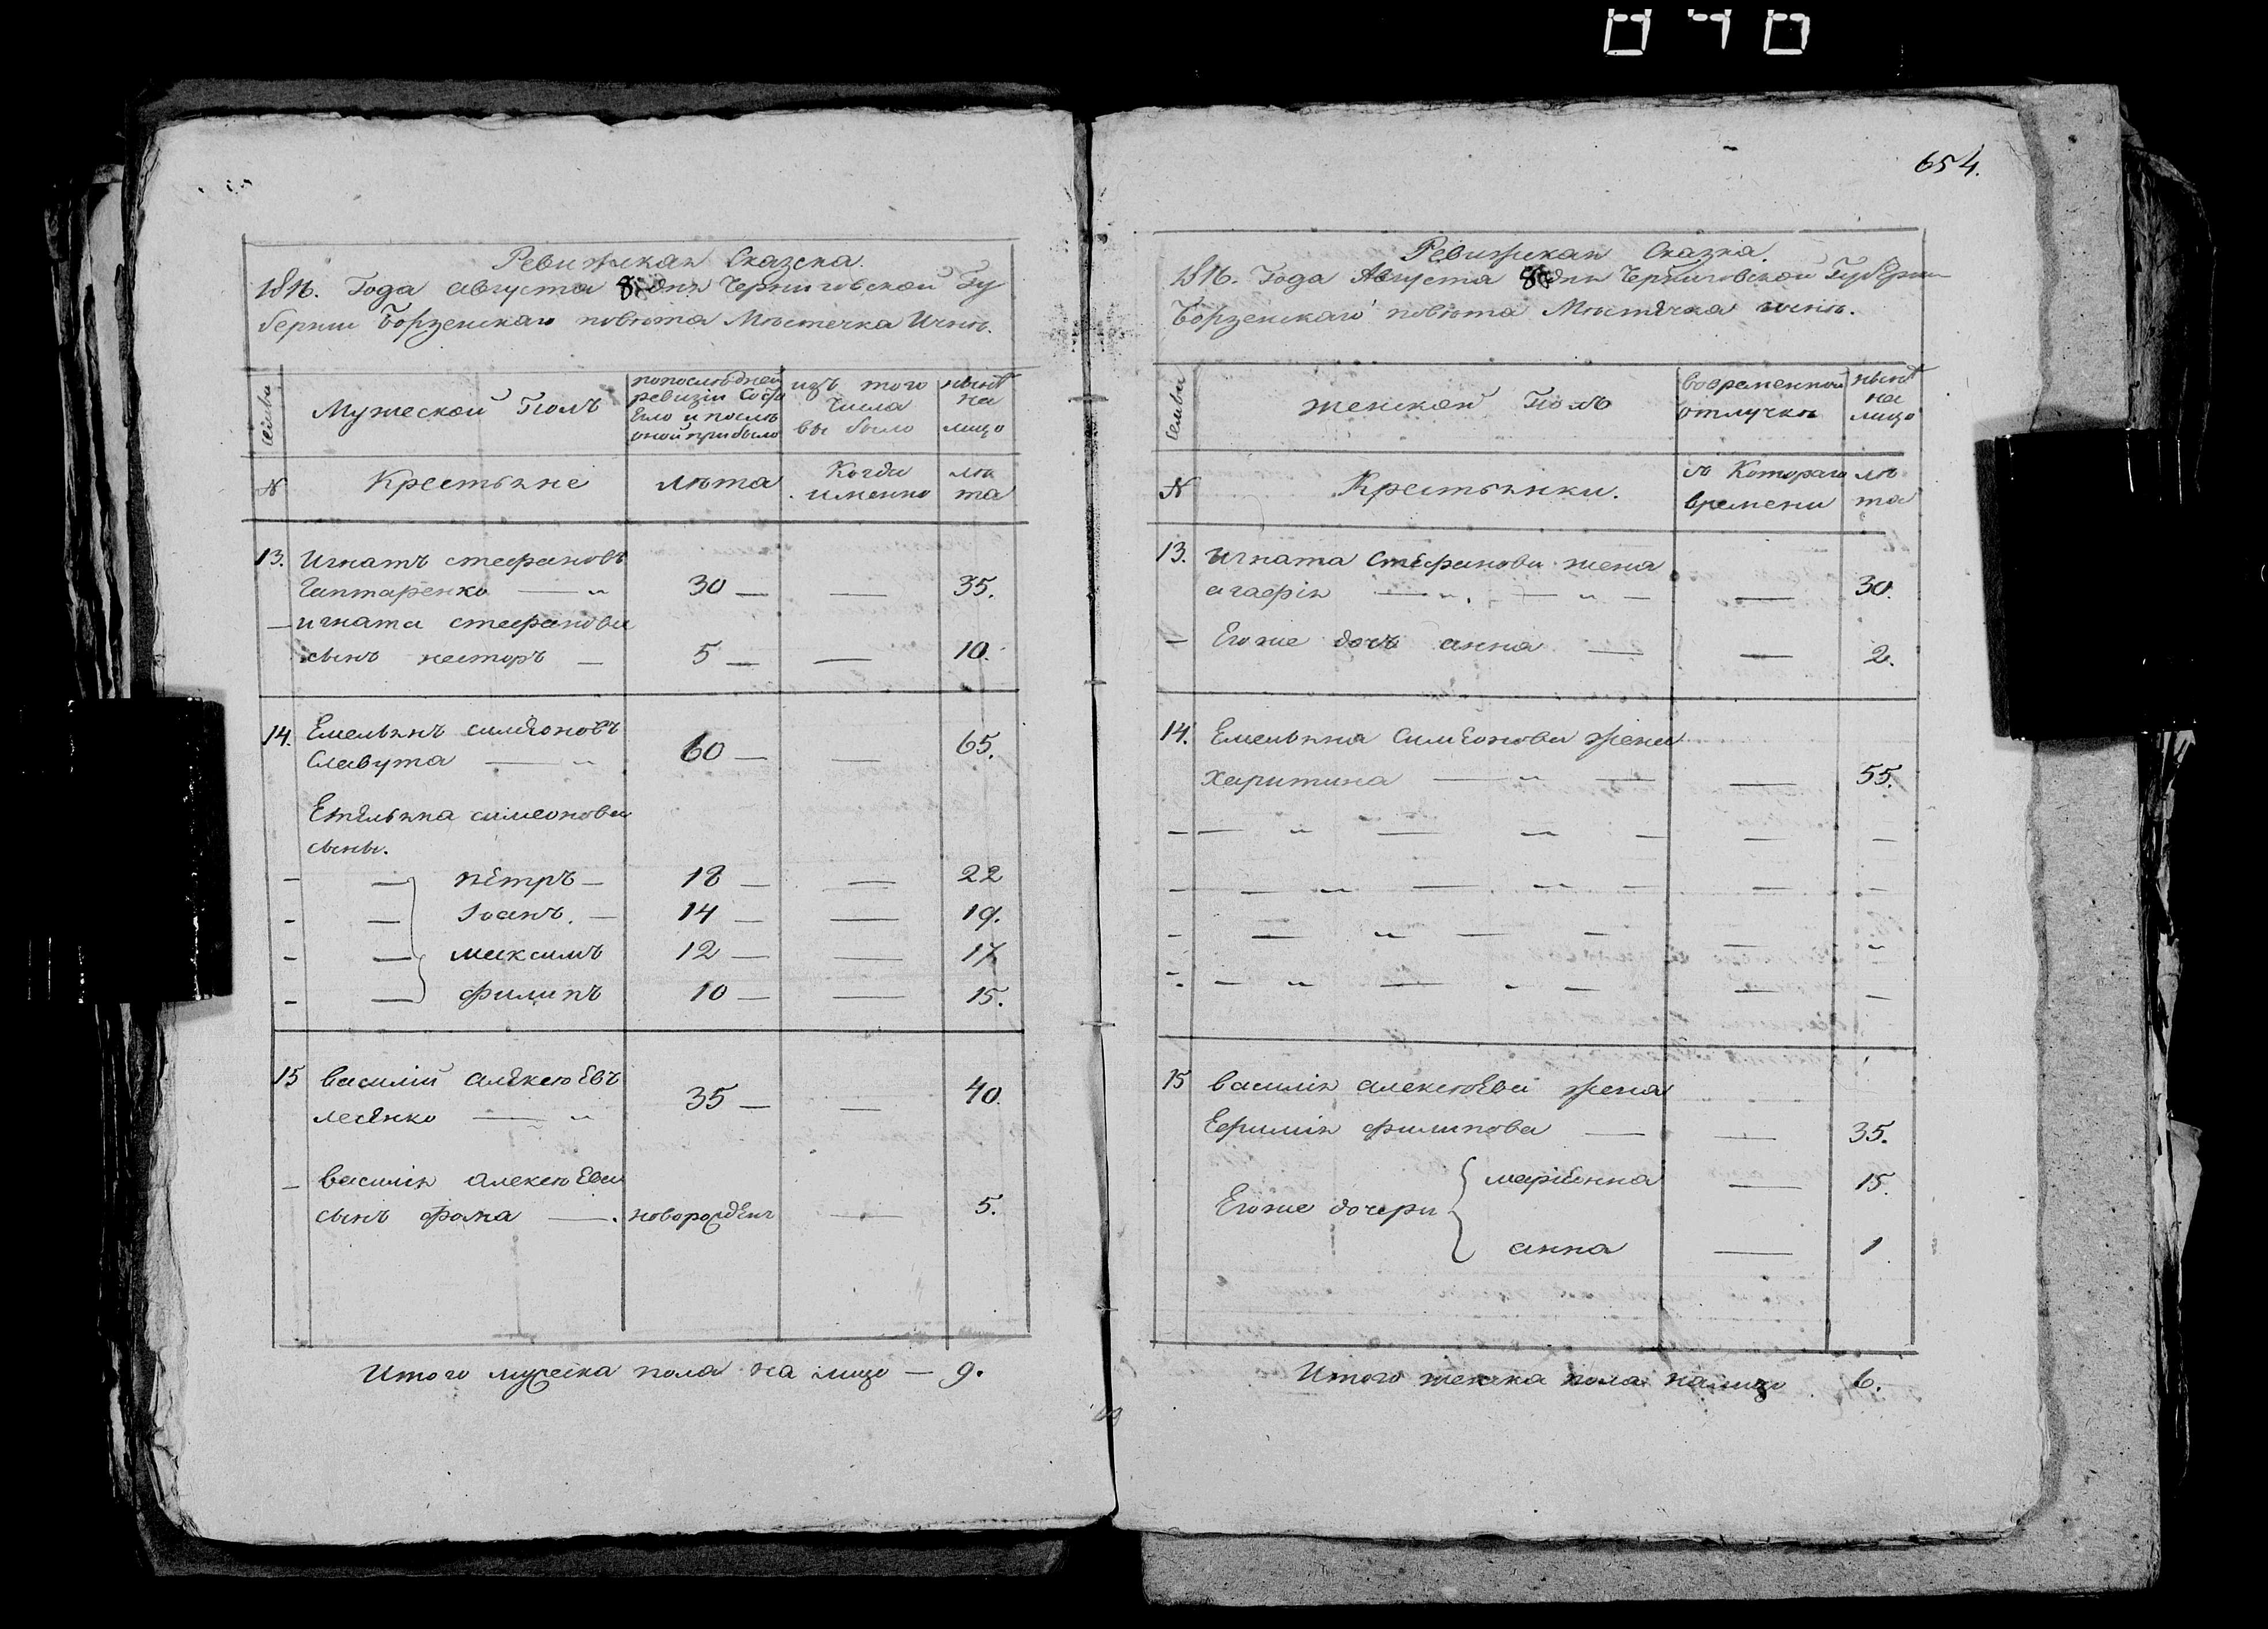 040
Ревижская Сказска.
1816. Года августа 8 дня Черниговской Гу
бернии Борзенскаго повѣта Мѣстечка Ичнѣ.
Семьи
Мужеской Полъ
попослѣдней
ревизіи состо
яло и послѣ
оной прибыло
изъ того
числа
выбыло
нынѣ
на
лицо
№
Крестьяне
лѣта
Когда
именно
лѣ
та
13. Игнатъ стефановъ
Гаптаренко — 30 — — 35.
— игната стефанова
сынъ несторъ — 5 — — 10.
14. Емельянъ симеоновъ
Славута — 60 — — 65.
Емельяна симеонова
сыны.
— — петръ — 18 — — 22
— — Іоанъ. — 14 — — 19.
— — максимъ 12 — — 17
— — филипъ 10 — — 15.
15 василій алексѣевъ
лесенко — 35 — — 40.
— василія алексѣева
сынъ фома — новорожденъ — 5.
Итого мужеска пола на лицо — 9.
654.
Ревижская Сказка.
1816. Года Августа 8 дня Черниговской Губернии
Борзенскаго повѣта Мѣстечка ичнѣ.
Семьи
женской Полъ
вовременной
отлучкѣ
нынѣ
на
лицо
№
Крестьянки.
съ Котораго
времени
лѣ
та
13. игната Стефанова жена
агафія — — — 30.
— Егоже дочь анна — — 2.
14. Емельяна Симеонова жена
харитина — — — 55.
15 василія алексѣева жена
Ефимія филипова — — 35.
маріанна — 15.
Егоже дочери
анна — 1
Итого женска пола налицо 6.